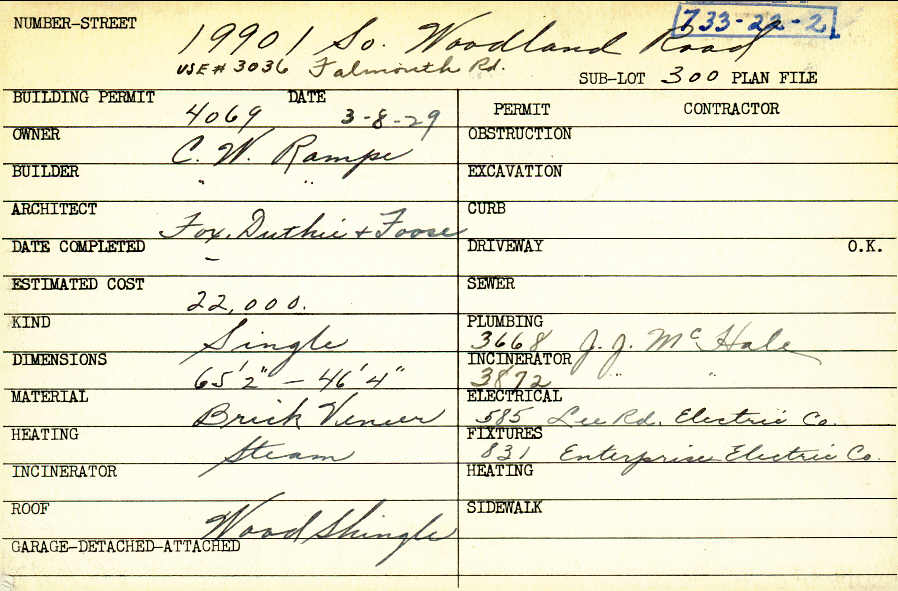 NUMBER-STREET 19901 So. Woodland Road 733-22-2
USE # 3036 Falmouth Rd. SUB-LOT 300 PLAN FILE
BUILDING PERMIT 4069 DATE 3-8-29
OWNER C. W. Rampe
BUILDER " "
ARCHITECT Fox, Duthie + Foose
DATE COMPLETED –
ESTIMATED COST 22,000.
KIND Single
DIMENSIONS 65'2" – 46'4"
MATERIAL Brick Veneer
HEATING Steam
INCINERATOR
ROOF Wood Shingle
GARAGE-DETACHED-ATTACHED
PERMIT CONTRACTOR
OBSTRUCTION
EXCAVATION
CURB
DRIVEWAY O.K.
SEWER
PLUMBING 3668 J. J. McHale
INCINERATOR 3872 " "
ELECTRICAL 585 Lee Rd. Electric Co.
FIXTURES 831 Enterprise Electric Co.
HEATING
SIDEWALK